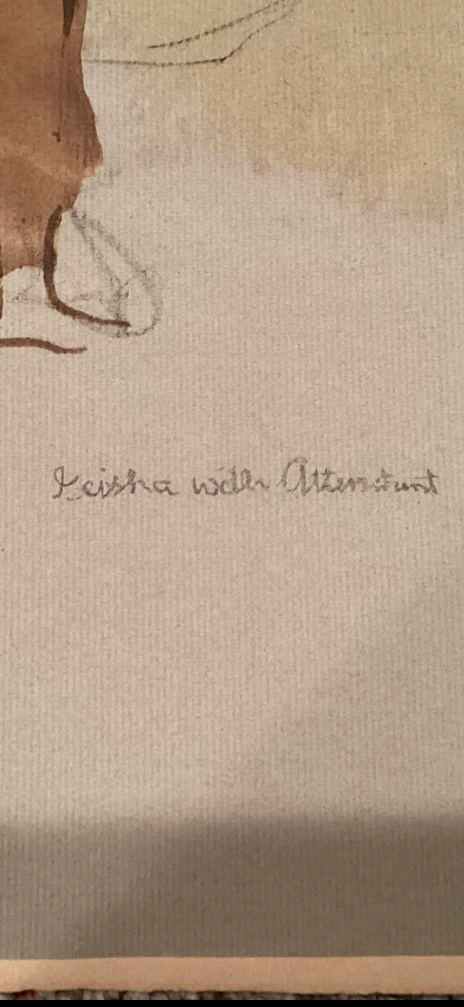 Geisha with Attendant